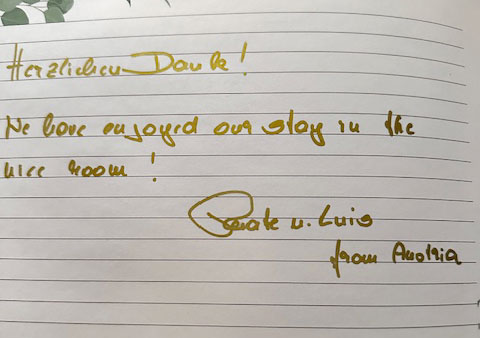 Herzlichen Dank!
We have enjoyed our stay in the
nice room!
Renate u. Luis
from Austria